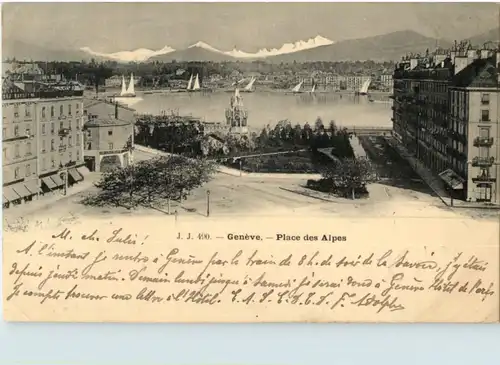 J. J. 490. – Genève. – Place des Alpes
M. ch. Julie!
A l'instant je rentre à Genève par le train de 8 h. de soir de la Savoie, j'y étais
depuis jeudi matin. Demain lundi jusque à Samedi je serai donc à Genève Hôtel de Paris
Je compte trouver une lettre à l'Hôtel. Adolphe